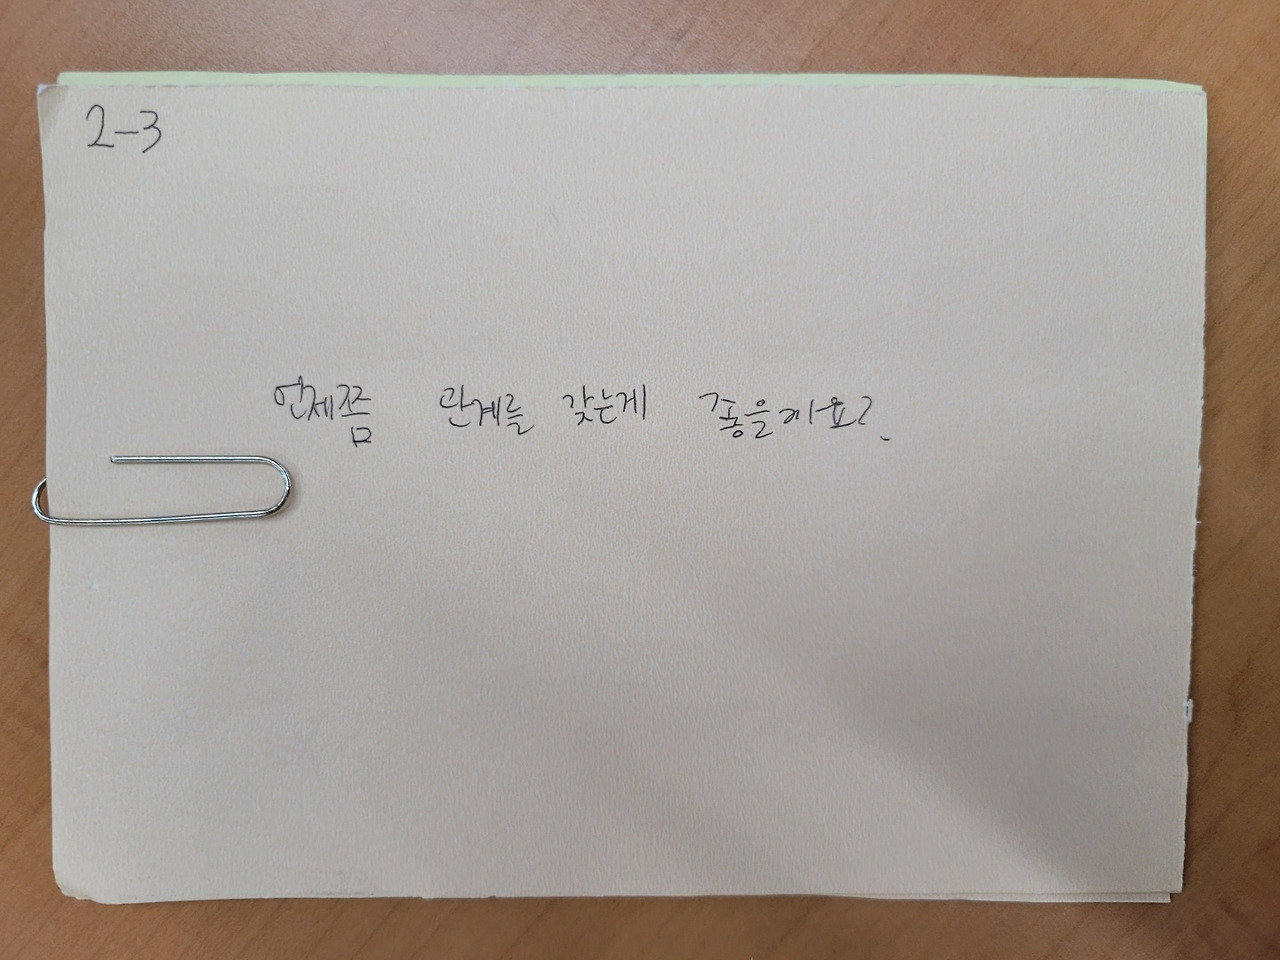 2-3
언제쯤 관계를 갖는게 좋을까요?